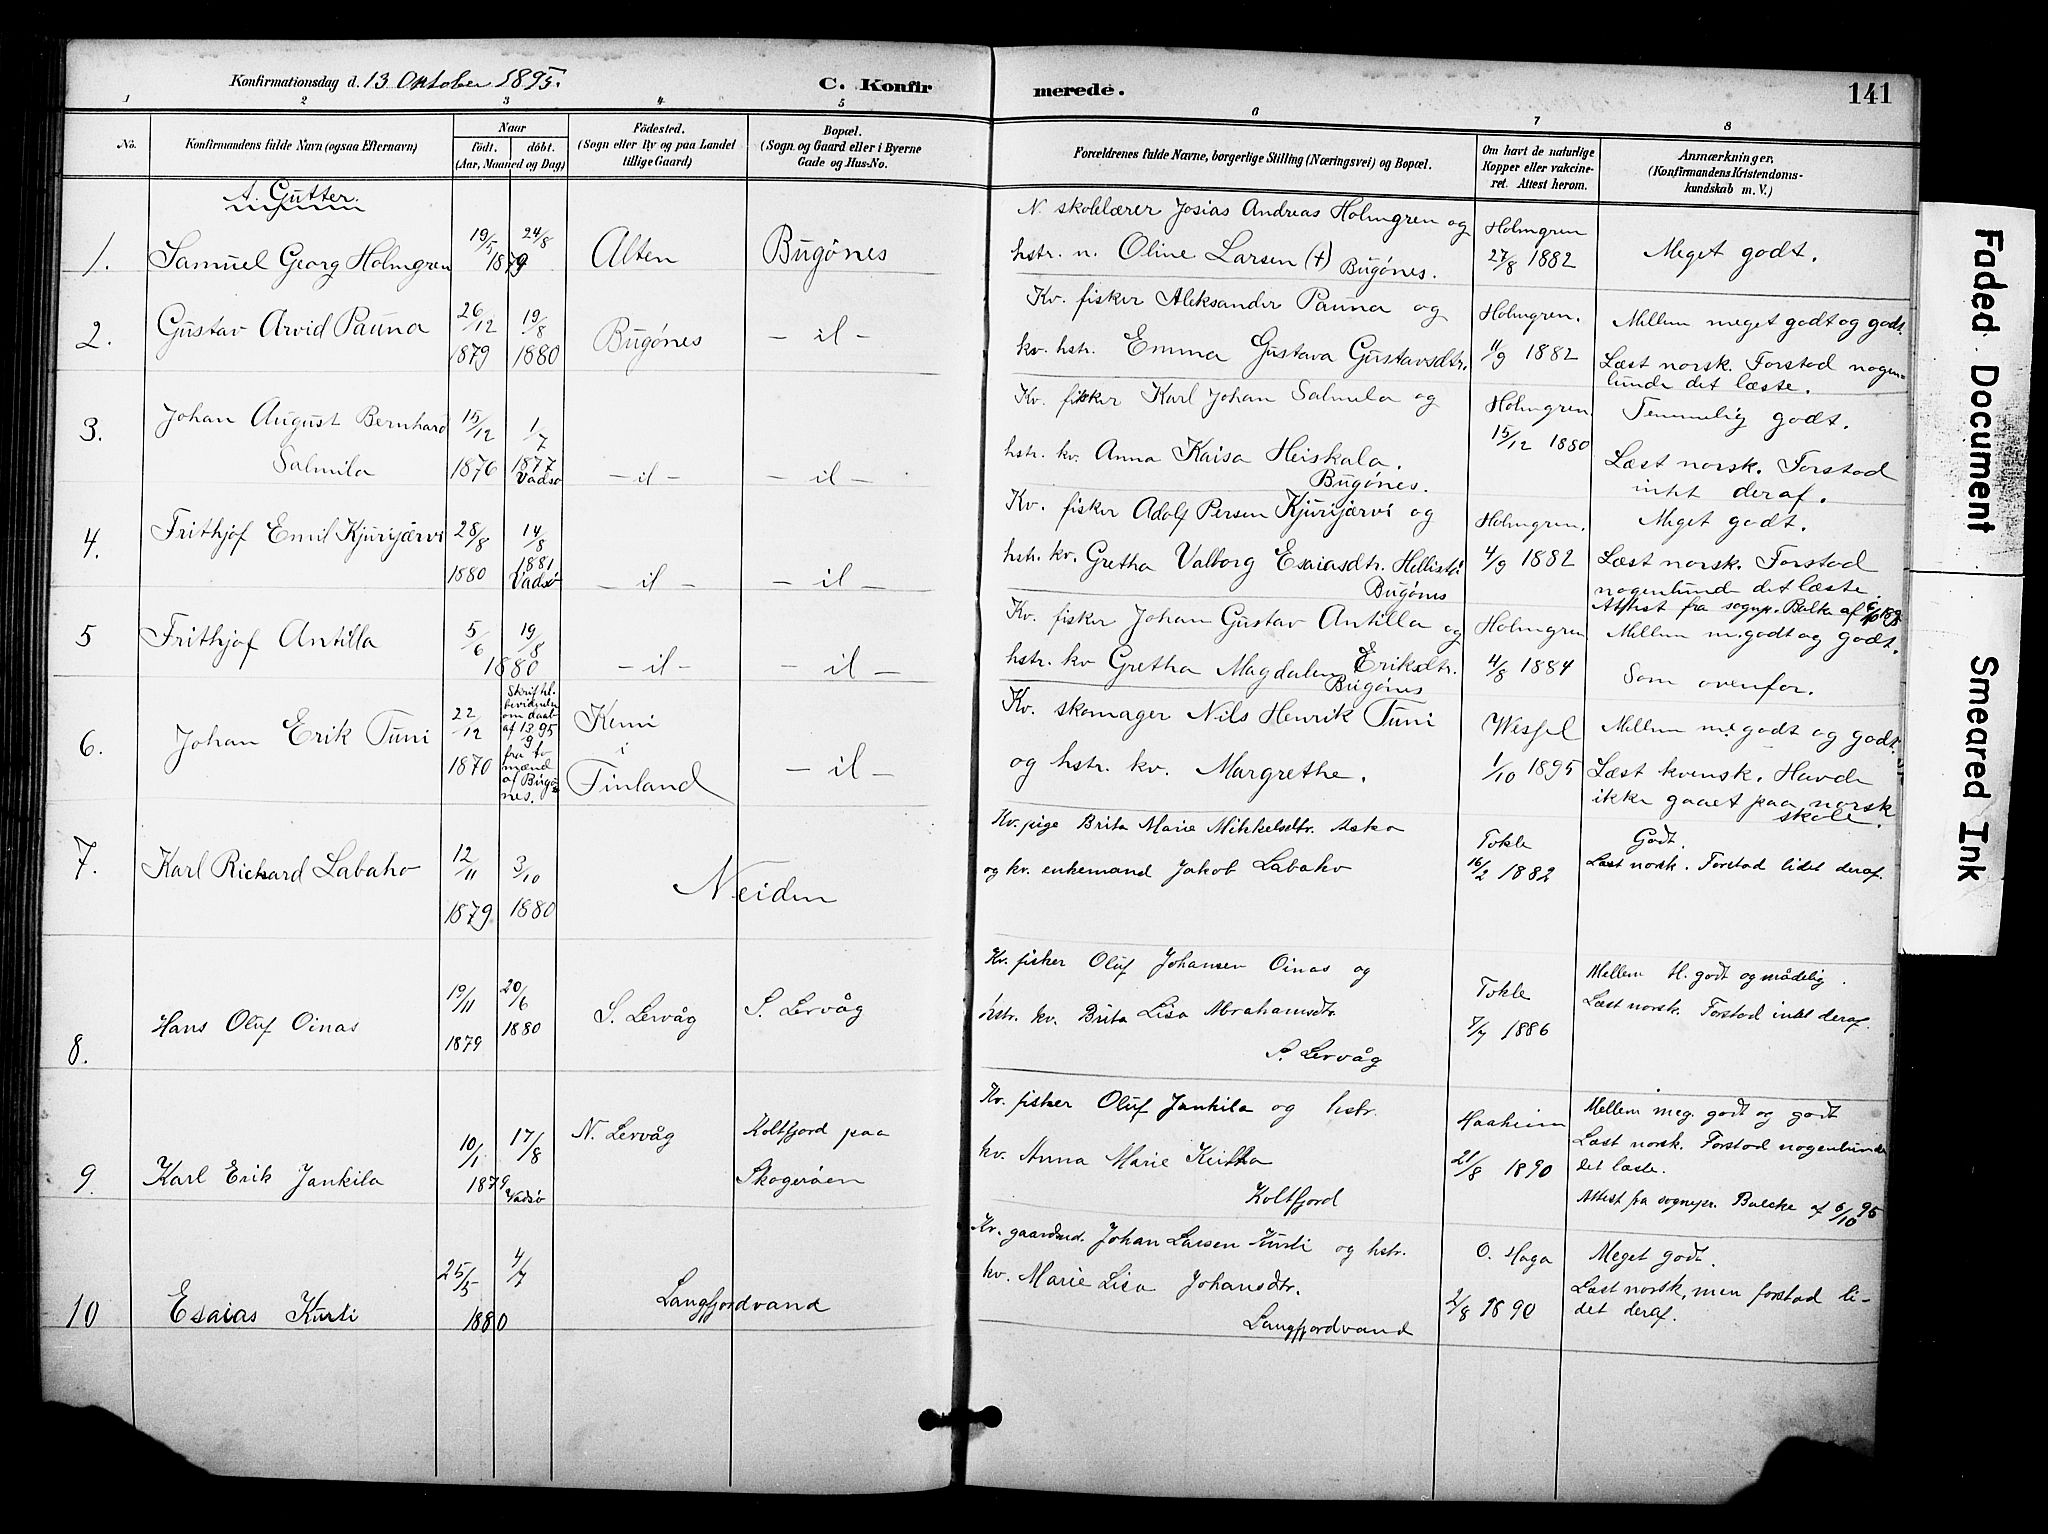 Konfirmationsdag d. 13 Oktober 1895.
C. Konfirmerede.
141
1 2 3 4 5 6 7 8
No.
Konfirmandens fulde Navn (ogsaa Efternavn)
Naar
födt. döbt.
(Aar, Maaned og Dag)
Födested.
(Sogn eller By og paa Landet
tillige Gaard)
Bopæl.
(Sogn og Gaard eller i Byerne
Gade og Hus-No.
Forældrenes fulde Navne, borgerlige Stilling (Næringsvei) og Bopæl.
Om havt de naturlige
Kopper eller vakcine-
ret. Attest herom.
Anmærkninger,
(Konfirmandens Kristendoms-
kundskab m. V.)
A. Gutter.
1. Samuel Georg Holmgren
19/5 24/8
1879
Alten
Bugönes
N. skolelærer Josias Andreas Holmgren og
hstr. n. Oline Larsen (+) Bugönes.
Holmgren
27/8 1882
Meget godt.
2. Gustav Arvid Pauna
26/12 19/8
1879 1880
Bugönes
- il -
Kv. fisker Aleksander Pauna og
kv. hstr. Emma Gustava Gustavsdtr.
Holmgren.
11/9 1882
Mellem meget godt og godt.
Læst norsk. Forstod nogen-
lunde det læste.
3. Johan August Bernhard
Salmila
15/12 1/7
1876 1877
Vadsö
- il -
- il -
Kv. fisker Karl Johan Salmila og
hstr. kv. Anna Kaisa Heiskala.
Bugönes.
Holmgren
15/12 1880
Temmelig godt.
Læst norsk. Forstod
intet deraf.
4. Frithjof Emil Kjurijærvi
28/8 14/8
1880 1881
Vadsö
- il -
- il -
Kv. fisker Adolf Persen Kjurijærvi og
hstr. kv. Gretha Valborg Esaiasdtr.
Bugönes
Holmgren.
4/9 1882
Meget godt.
Læst norsk. Forstod
nogenlunde det læste.
Attest fra sognepr. Balke af 6/10 1895
5 Frithjof Antilla
5/6 19/8
1880
- il -
- il -
Kv. fisker Johan Gustav Antilla og
hstr. kv Gretha Magdalena Eriksdtr.
Bugönes
Holmgren
4/8 1884
Mellem m. godt og godt.
Som ovenfor.
6. Johan Erik Tuni
22/12
1870
Skriftl.
bevidnelse
om daab
af 13/9 95
fra to
mænd
af Bugö-
nes.
Kemi
i
Finland
- il -
Kv. skomager Nils Henrik Tuni
og hstr. kv. Margrethe.
Wessel
1/10 1895
Mellem m. godt og godt.
Læst kvensk. Havde
ikke gaaet paa norsk
skole.
7. Karl Rickard Labaho
12/11 3/10
1879 1880
Neiden
Kv. pige Brita Marie Mikkelsdtr. Asko
og kv. enkemand Jakob Labaho
Tokle
16/2 1882
Godt.
Læst norsk. Forstod lidet deraf.
8. Hans Oluf Oinas
19/11 20/6
1879 1880
S. Lervåg
S. Lervåg
Kv. fisker Oluf Johansen Oinas og
hstr. kv. Brita Lisa Abrahamsdtr.
S. Lervåg
Tokle
7/7 1886
Mellem t. godt og mådelig.
Læst norsk. Forstod intet deraf.
9. Karl Erik Jankila
10/1 17/8
1879
Vadsö
N. Lervåg
Koltfjord paa
Skogeröen
Kv. fisker Oluf Jankila og hstr.
kv. Anna Marie
Koltfjord
Haaheim
21/8 1890
Mellem meg. godt og godt
Læst norsk. Forstod nogenlunde
det læste.
Attest fra sognepr. Balcke af 6/10 95
10 Esaias Kurti
25/5 4/7
1880
Langfjordvand
Kv. gaardmd. Johan Larsen Kurti og hstr.
kv. Marie Lisa Johansdtr.
Langfjordvand
O. Haga
2/8 1890
Meget godt.
Læst norsk, men forstod li-
det deraf.
Faded Document Smeared Ink